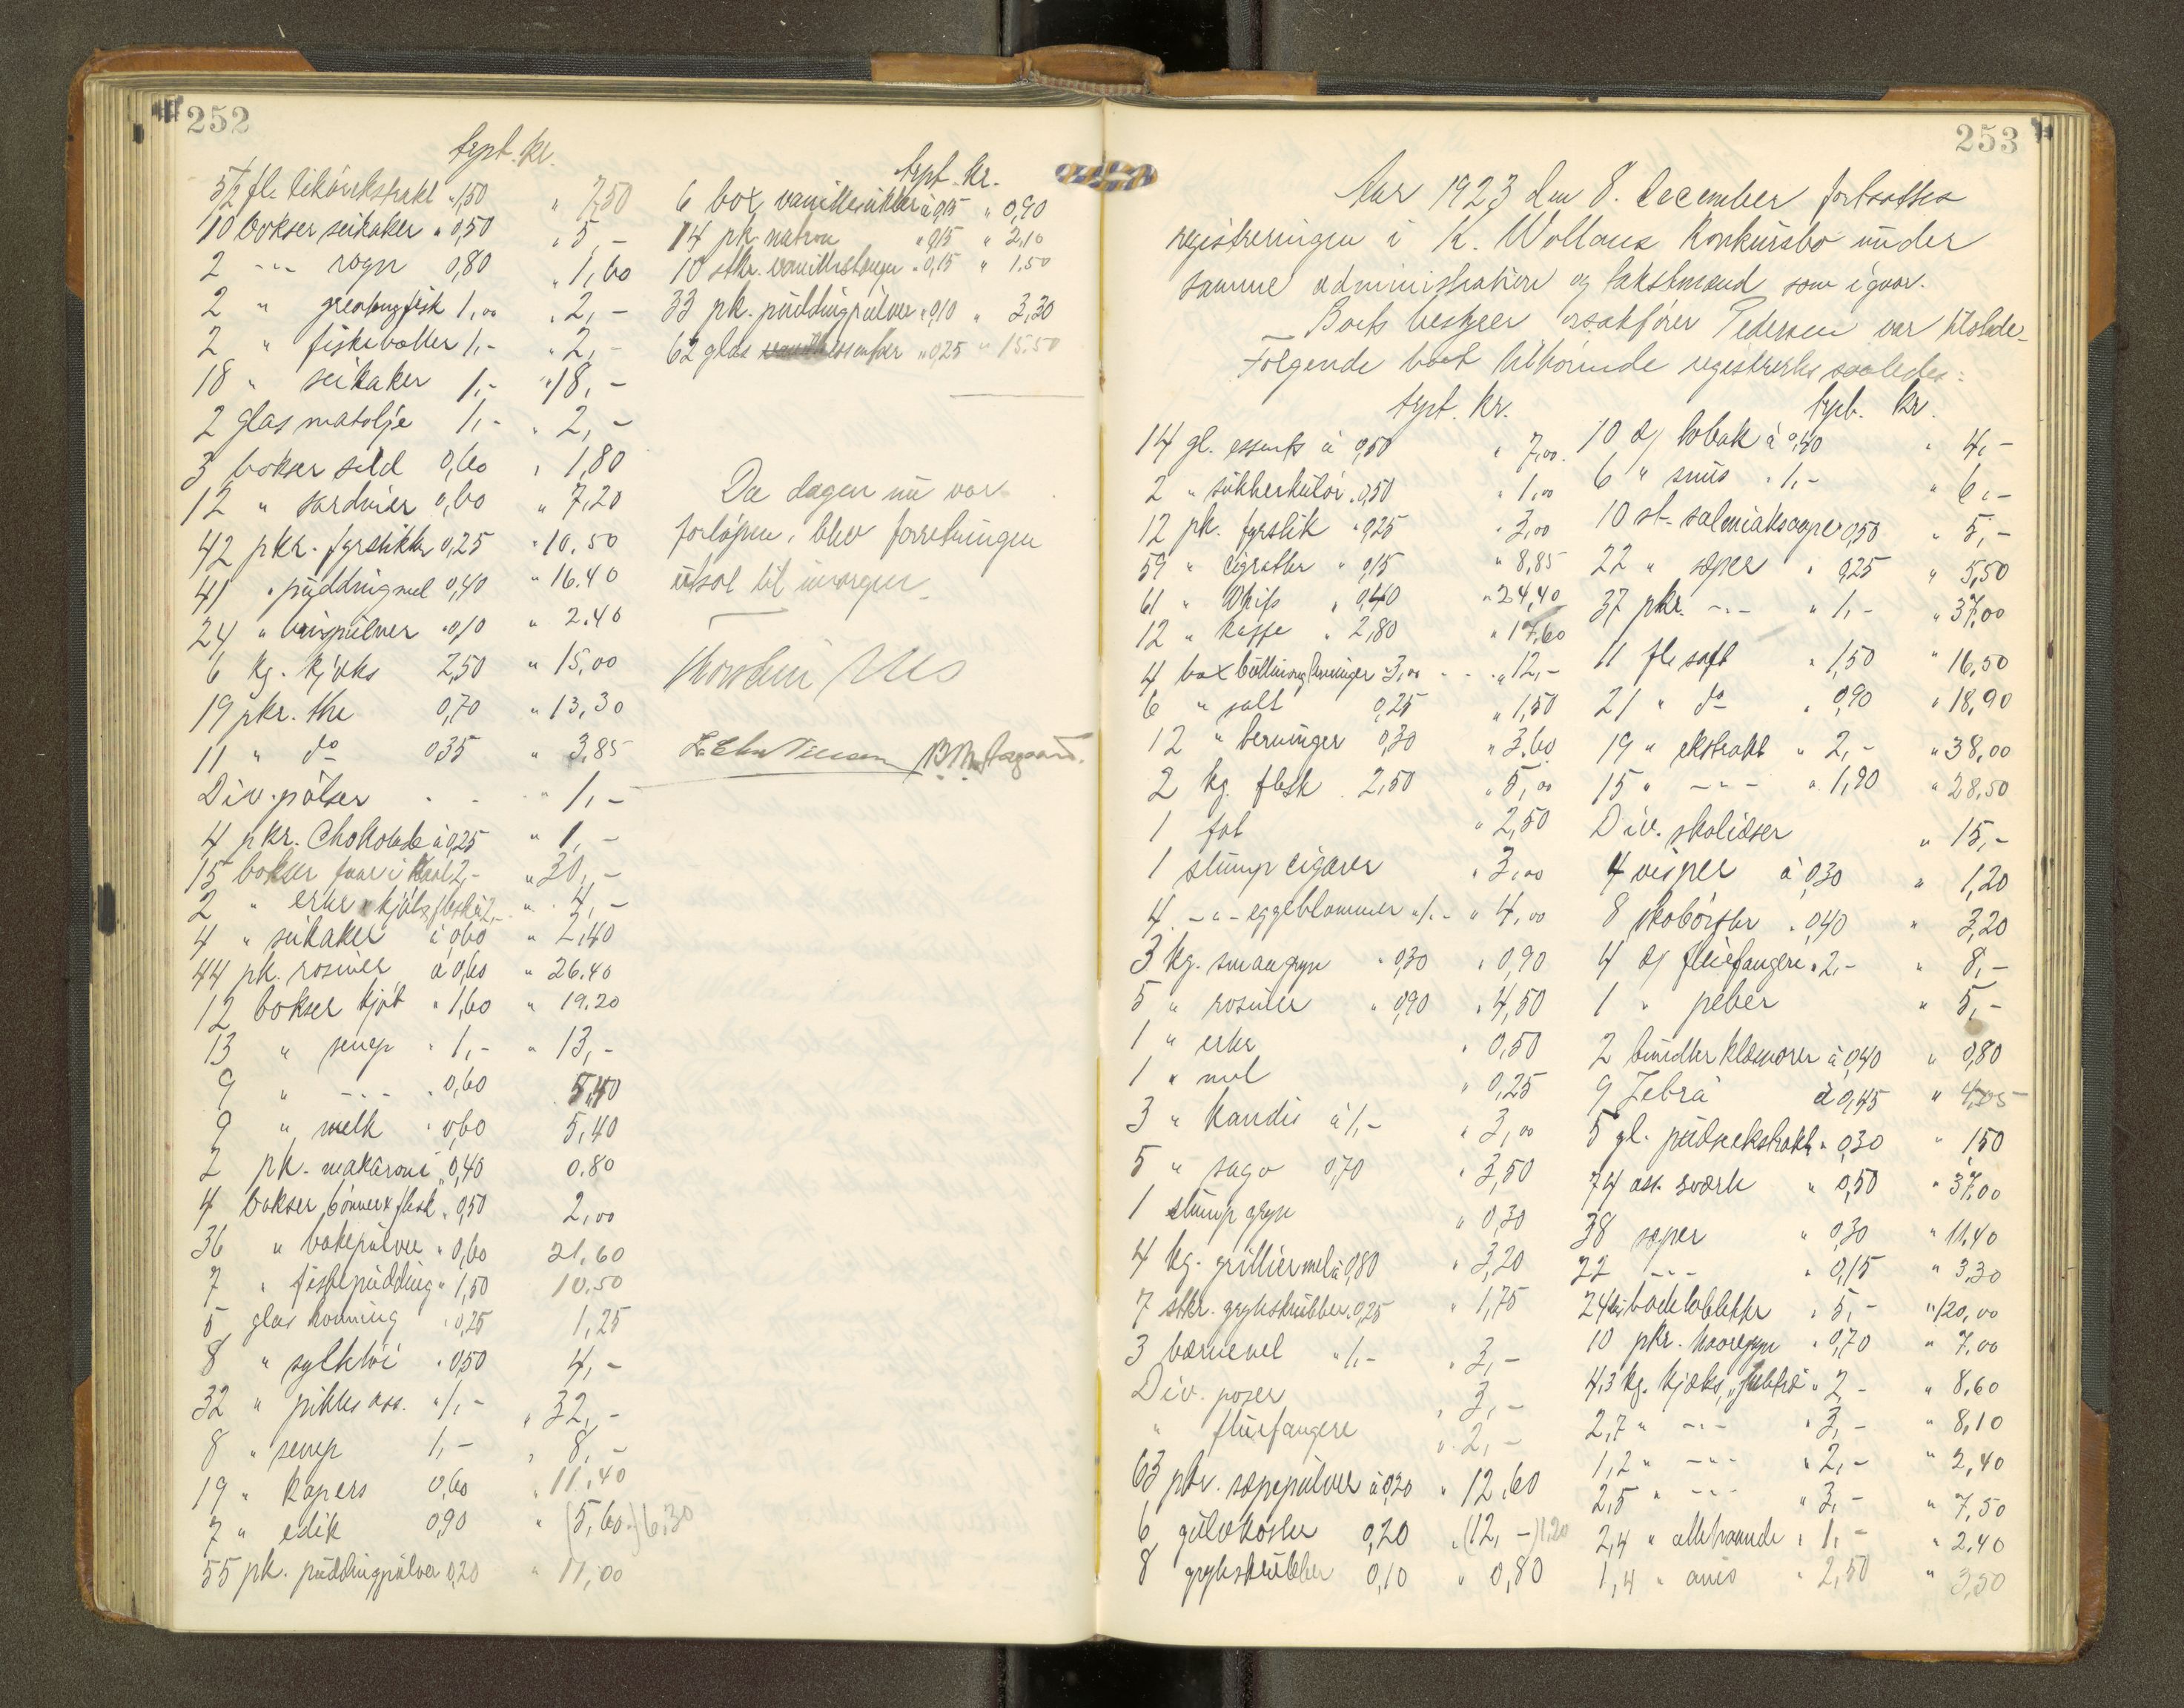 252
takst. kr.
5/2 fl. likörekstrakt " 1,50 " 7,50
10 bokser seikaker " 0,50 " 5,-
2 -"- rogn 0,80 " 1,60
2 " 1,00 " 2,-
2 " fiskeboller 1,- " 2,-
18 " seikaker 1,- " 18,-
2 glas matolje 1,- " 2,-
3 bokser sild 0,60 " 1,80
12 " sardiner 0,60 " 7,20
42 pkr. fyrstikker 0,25 " 10.50
41 " puddingmel 0,40 " 16.40
24 " 0,10 " 2.40
6 kg. kjæks 2,50 " 15,00
19 pkr. the 0,70 " 13,30
11 " do 0,35 " 3,85
Div. pölser " 1,-
4 pkr. Chokolade à 0,25 " 1,-
15 bokser faar i kaal 2,- " 30,-
2 " erter kjöt & flesk à 2,- " 4,-
4 " seikaker à 0,60 " 2,40
44 pk. rosiner à 0,60 " 26.40
12 bokser kjöt " 1,60 " 19.20
13 " senep " 1,- " 13,-
9 " -"- " 0,60 5,40
9 " melk " 0,60 5,40
2 pk. makaroni " 0,40 0.80
4 bokser bönner & flesk " 0,50 2,00
36 " bakepulver " 0,60 21,60
7 " fiskepudding " 1,50 10.50
5 glas honning " 0,25 1,25
8 " syltetöi " 0,50 4,-
32 " pikles ass. " 1,- " 32,-
8 " senep 1,- " 8,-
19 " kapers 0,60 " 11,40
7 " edik 0,90 " (5,60) 6,30
55 pk. puddingpulver 0,20 " 11,00
takst kr.
6 box vanillesukker à 0,15 " 0,90
14 pk. natron " 0,15 " 2,10
10 stkr. vanillestænger " 0,15 " 1.50
33 pk. puddingpulver " 0,10 " 3,30
62 glas essenser " 0,25 " 15.50
Da dagen nu var
forløpen, blev forretningen
utsat til imorgen.
253
Aar 1923 den 8. december fortsattes
registreringen i K. Wollans konkursbo under
samme administration og takstmænd som igaar.
Boets bestyrer orsakfører Pedersen var tilstede.
Følgende boet tilhørende registrertes saaledes:
takst. kr.
14 gl. essents à 0,50 " 7,00.
2 " sukkerkulör " 0,50 " 1,00
12 pk. fyrstik " 0,25 " 3,00
59 " cigretter " 0,15 " 8,85
61 " Whifs " 0,40 " 24,40
12 " kaffe " 2,80 " 17,60
4 box 3,00 " 12,-
6 " salt 0,25 " 1,50
12 " terninger 0,30 " 3.60
2 kg. flesk 2,50 " 5,00
1 fat " 2,50
1 stump cigarer " 3,00
4 -"- eggeblommer " 1.- " 4,00
3 kg. smaagryn " 0,30 " 0,90
5 " rosiner " 0,90 " 4,50
1 " erter " 0,50
1 " mel " 0,25
3 " kandis à 1,- " 3,00
5 " sago 0,70 " 3,50
1 stump gryn " 0,30
4 kg. grilliermel à 0,80 " 3,20
7 stkr. grytskrubber 0,25 " 1,75
3 " 1,- " 3,-
Div. poser " 3,-
" fluefangere " 2,-
63 pkr. sæpepulver à 0,20 " 12,60
6 gulvkoster 0,20 " (12,-) 1,20
8 grytskrubber 0,10 " 0,80
takst. kr.
10 æ tobak à 0,40 " 4,-
6 " snus " 1,- " 6,-
10 st. salmiaksæper 0,50 " 5,-
22 " sæper " 0,25 " 5,50
37 pkr. -"- " 1,- " 37,00
11 fl. saft " 1,50 " 16,50
21 " do " 0,90 " 18,90
19 " ekstrakt " 2,- " 38,00
15 " -"- " 1,90 " 28,50
Div. skolisser " 15,-
4 visper à 0,30 " 1,20
8 skobørster " 0,40 " 3,20
4 æ fluefangere " 2,- " 8,-
1 " peber " 5,-
2 bundter klæsnorer à 0,40 " 0,80
9 Zebra à 0,45 " 4,05
5 gl. pudseekstrakt " 0,30 " 1,50
74 æsk. sværte " 0,50 " 37,00
38 sæper " 0,30 " 11.40
22 -"- " 0,15 " 3.30
24 " 5,- " 120,00
10 pkr. havregryn " 0,70 " 7,00
4,3 kg. kjæks, " 2,- " 8,60
2,7 " -"- " 3,- " 8,10
1,2 " -"- " 2,- " 2,40
2,5 " -"- " 3,- " 7,50
2,4 " allehaande " 1,- " 2,40
1,4 " anis " 2,50 " 3,50